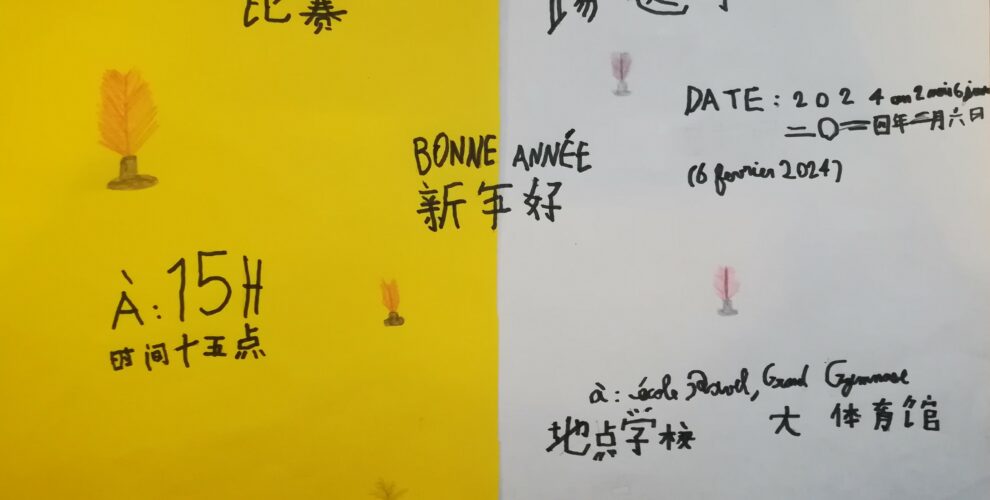 比赛
BONNE ANNÉE
新年好
À : 15H
时间十五点
DATE : 2024 an 2 mois 6 jours
二〇二四年二月六日
(6 fevrier 2024)
à : école Ravel, Grand Gymnase
地点学校 大 体育馆